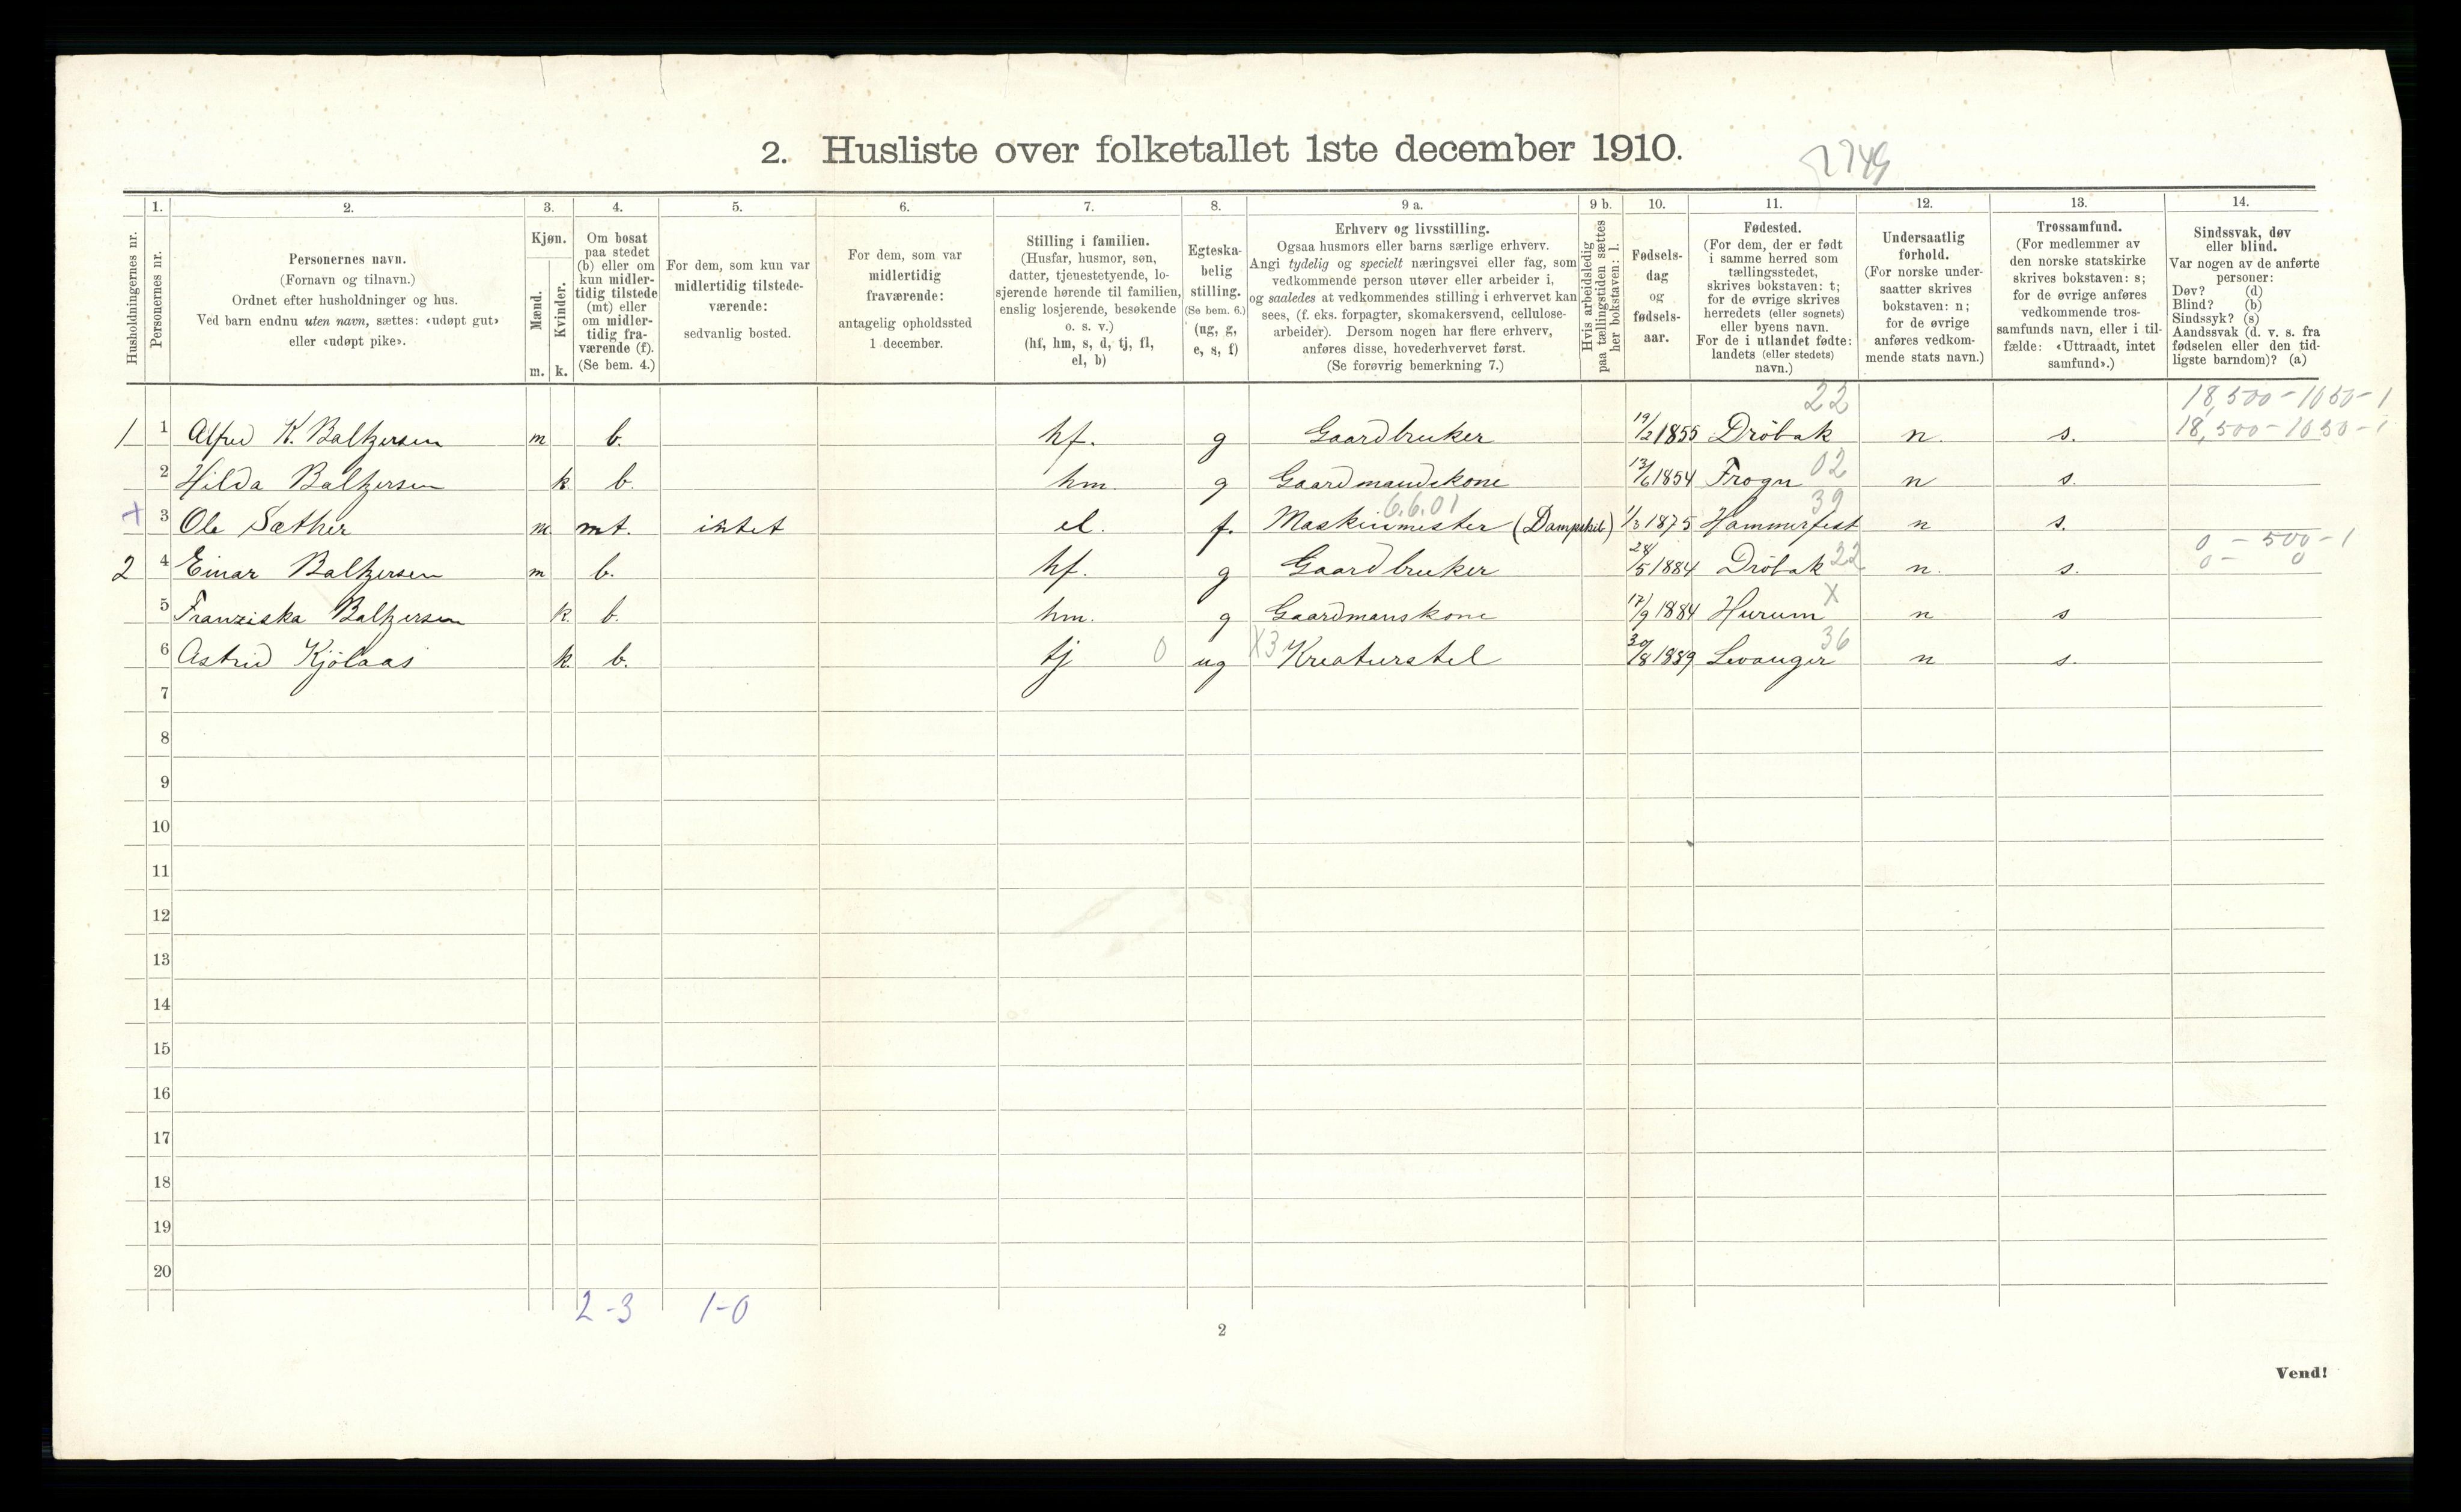 2. Husliste over folketallet 1ste december 1910.
2749
Husholdningernes nr.
1.
Personernes nr.
2.
Personernes navn.
(Fornavn og tilnavn.)
Ordnet efter husholdninger og hus.
Ved barn endnu uten navn, sættes: «udøpt gut»
eller «udøpt pike».
3.
Kjøn.
Mænd.
Kvinder.
m. k.
4.
Om bosat
paa stedet
(b) eller om
kun midler-
tidig tilstede
(mt) eller
om midler-
tidig fra-
værende (f).
(Se bem. 4.)
5.
For dem, som kun var
midlertidig tilstede-
værende:
sedvanlig bosted.
6.
For dem, som var
midlertidig
fraværende:
antagelig opholdssted
1 december.
7.
Stilling i familien.
(Husfar, husmor, søn,
datter, tjenestetyende, lo-
sjerende hørende til familien,
enslig losjerende, besøkende
o. s. v.)
(hf, hm, s, d, tj, fl,
el, b)
8.
Egteska-
belig
stilling.
(Se bem. 6.)
(ug, g,
e, s, f)
9 a.
Erhverv og livsstilling.
Ogsaa husmors eller barns særlige erhverv.
Angi tydelig og specielt næringsvei eller fag, som
vedkommende person utøver eller arbeider i,
og saaledes at vedkommendes stilling i erhvervet kan
sees, (f. eks. forpagter, skomakersvend, cellulose-
arbeider). Dersom nogen har flere erhverv,
anføres disse, hovederhvervet først.
(Se forøvrig bemerkning 7.)
9 b.
Hvis arbeidsledig
paa tællingstiden sættes
her bokstaven: l.
10.
Fødsels-
dag
og
fødsels-
aar.
11.
Fødested.
(For dem, der er født
i samme herred som
tællingsstedet,
skrives bokstaven: t;
for de øvrige skrives
herredets (eller sognets)
eller byens navn.
For de i utlandet fødte:
landets (eller stedets)
navn.)
12.
Undersaatlig
forhold.
(For norske under-
saatter skrives
bokstaven: n;
for de øvrige
anføres vedkom-
mende stats navn.)
13.
Trossamfund.
(For medlemmer av
den norske statskirke
skrives bokstaven: s;
for de øvrige anføres
vedkommende tros-
samfunds navn, eller i til-
fælde: «Uttraadt, intet
samfund».)
14.
Sindssvak, døv
eller blind.
Var nogen av de anførte
personer:
Døv? (d)
Blind? (b)
Sindssyk? (s)
Aandssvak (d. v. s. fra
fødselen eller den tid-
ligste barndom)? (a)
22 18,500 - 1050 - 1
1 1 Alfred K. Baltzersen m b. hf. g Gaardbruker 19/2 1855 Dröbak n. s. 18,500 - 1050 - 1
2 Hilda Baltzersen k b. hm. g Gaardmandskone 13/6 1854 Frogn 02 n s.
6.6.01 39
+ 3 Ole Sæther m. mt. intet el. f. Maskinmester (Dampskib) 1/3 1875 Hammerfest n s.
0 - 500 - 1
2 4 Einar Baltzersen m b. hf. g Gaardbruker 28/5 1884 Dröbak 22 n. s. 0 - 0
5 Franziska Baltzersen k. b. hm. g Gaardmanskone 17/9 1884 Hurum X n s
6 Astrid Kjölaas k. b. tj 0 ug X3 Kreaturstel 30/8 1889 Levanger 36 n s.
7
8
9
10
11
12
13
14
15
16
17
18
19
20
2-3 1-0
2
Vend!